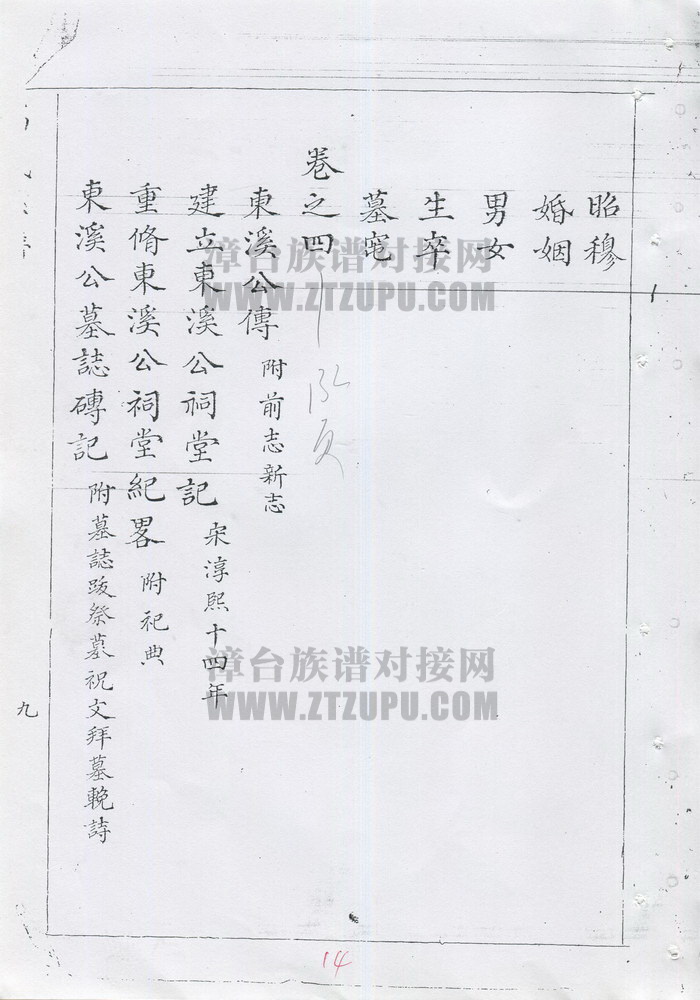 昭穆
婚姻
男女
生卒
墓茔
卷之四
東溪公傳 附前志新志
建立東溪公祠堂記 宋淳熙十四年
重脩東溪公祠堂紀畧 附祀典
東溪公墓誌磚記 附墓誌跋祭墓祝文拜墓輓詩
九
14
漳台族谱对接网
WWW.ZTZUPU.COM
漳台族谱对接网
WWW.ZTZUPU.COM